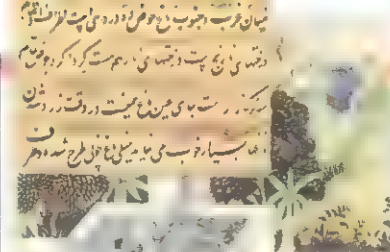 میان غرب و جنوب باغ حوض ده در ده است اطراف او تمام
درختهای نارنج است و درختهای انار هم هست گرداگرد حوض تمام
سه برگه زار است جای عین باغ همین است در وقت زرد شدن
نارنجها بسیار خوب می نماید خیلی باغ خوبی طرح شده